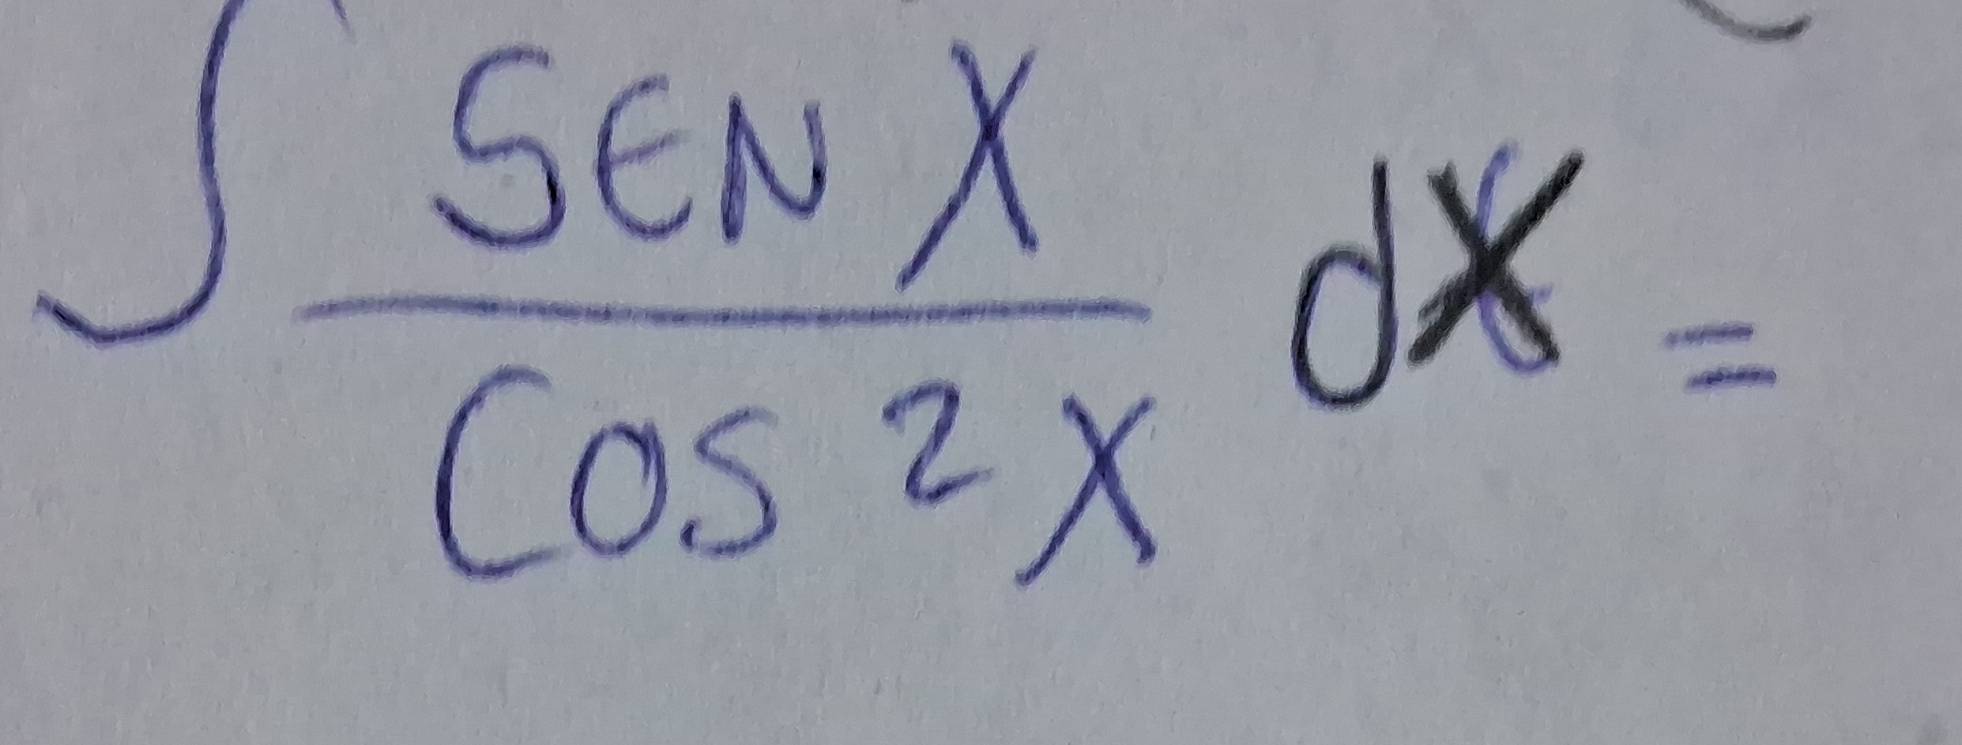 ∫ SEN X / COS²X dX =